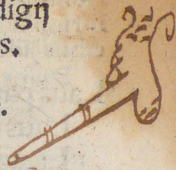 dign
s.
.